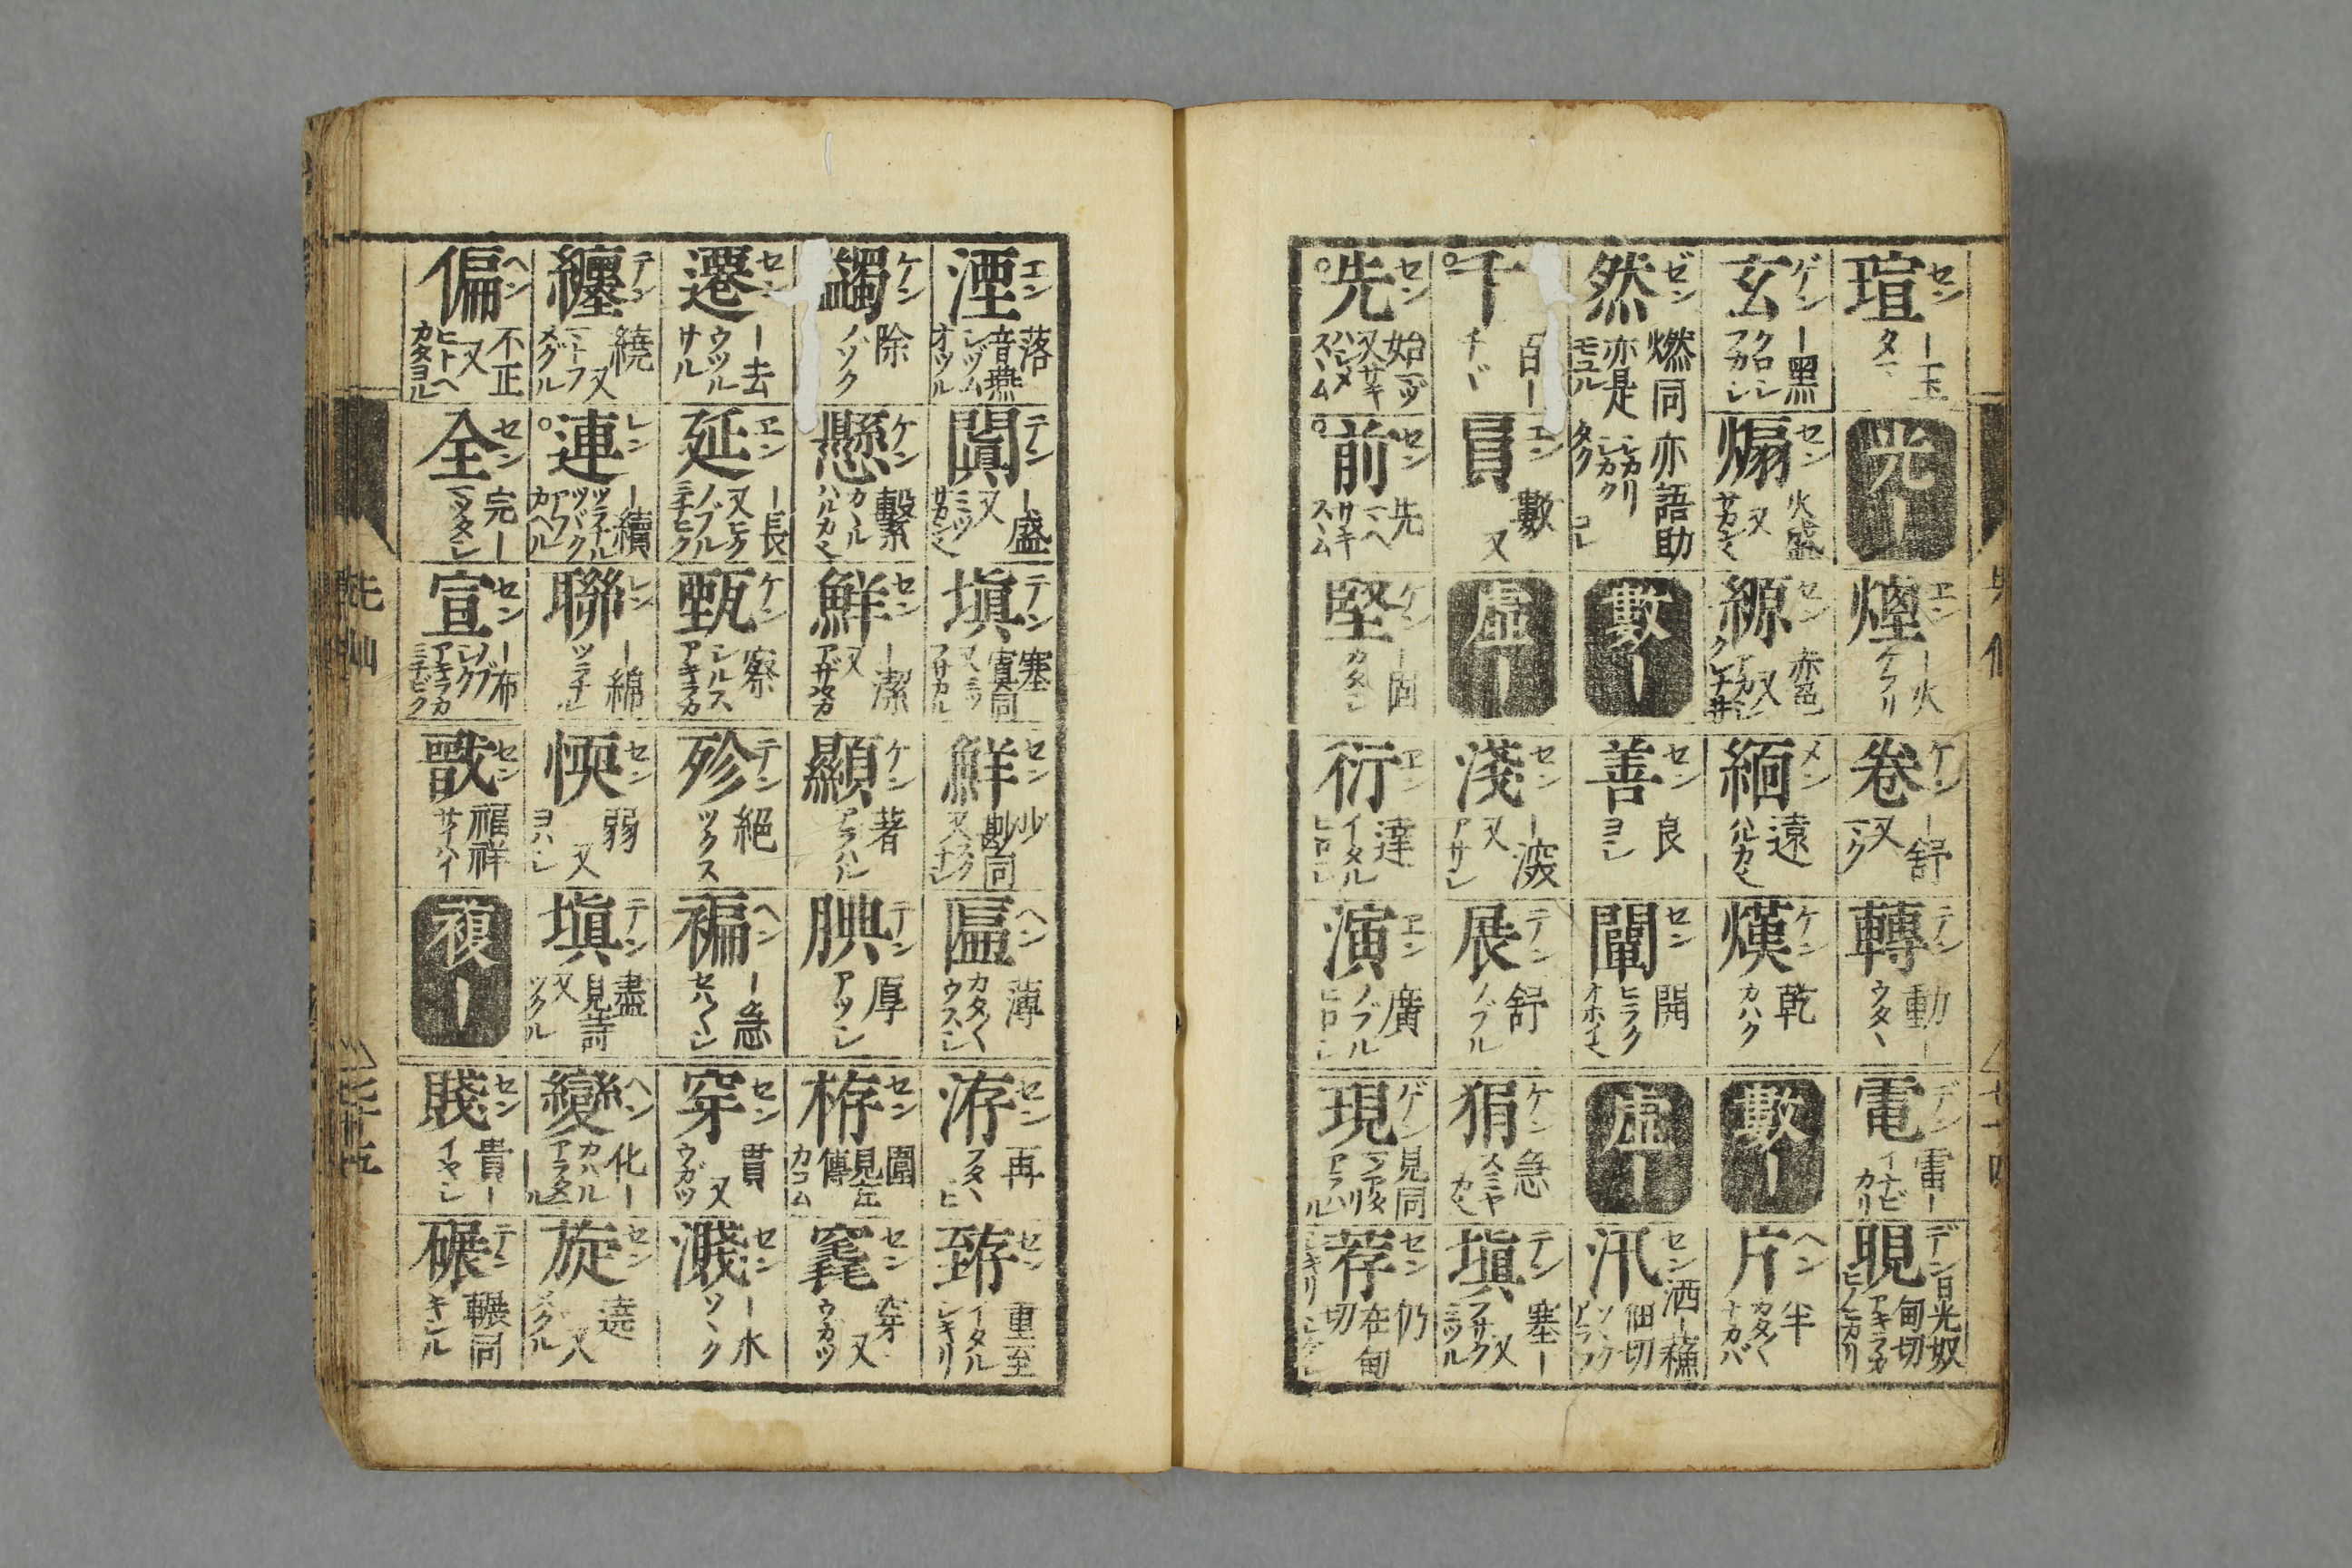 瑄 セン ー玉 タマ 光ー 煙 エン ー火 ケフリ 卷 ケン ー舒 又 マク 轉 テン 動ー ウタヽ 電 デン 雷ー イナビカリ 晛 デン 日光奴甸切 アキラカ ヒノヒカリ
玄 ゲン ー黑 クロシ フカシ 煽 セン 火盛 又 サカン也 縓 セン 又 クレナ井 緬 メン 遠 ハルカ也 熯 ケン 乾 カハク 數ー 片 ヘン 半 カタ〱 ナカバ
然 ゼン 燃同 亦是 モユル 亦語助 シカリ シカク コレ 數ー 善 セン 良 ヨシ 闡 セン 開 ヒラク オホイ也 虛ー 汛 セン 洒ー 佃切 ソヽク アラフ
千 百ー チヾ 員 エン 數 又 虛ー 淺 セン ー深 又 アサシ 展 テン 舒 ノブル 狷 ケン 急 スミヤカ也 塡 テン 塞ー 又 フサク ミツル
先 セン 始 マヅ 又サキ ハシメ スヽム 前 セン 先 マヘ サキ スヽム 堅 ケン ー固 カタシ 衍 エン 達 イタル ヒロシ 演 エン 廣 ノブル ヒロシ 現 ゲン 見同 アラハル 荐 セン 仍 在甸切 シキリ
湮 エン 落 音燕 シツム オツル 闐 テン ー盛 又 ミツ サカン也 塡 テン 塞 寘同 又ミツ フサカル 鮮 セン 少 尠同 又スクナシ 匾 ヘン 薄 カタ〱 ウスシ 洊 セン 再 フタヽヒ 臶 セン 重至 イタル シキリ
蠲 ケン 除 ノゾク 懸 ケン 繫 カヽル ハルカ也 鮮 セン ー潔 又 アザヤカ 顯 ケン 著 アラハル 腆 テン 厚 アツシ 栫 セン 圍 見左傳 カコム 竁 セン 穿 又 ウガツ
遷 セン ー去 ウツル サル 延 エン ー長 又ヒク ノブル ミチヒク 甄 ケン 察 シルス アキラカ 殄 テン 絕 ツクス 褊 ヘン ー急 セハ〱シ 穿 セン 貫 又 ウガツ 濺 セン ー水 ソヽク
纏 テン 繞 又 マトフ メグル 連 レン ー續 ツラナル ツヾク 聯 レン ー綿 ツラナル 愞 セン 弱 又 ヨハシ 塡 テン 盡 見詩 又 ツクル 變 ヘン 化ー カハル アラタマル 旋 セン 遶 又 メクル
偏 ヘン 不正 又 ヒトヘ カタヨル 全 セン 完ー マツタシ 宣 セン ー布 ノブ シク アキラカ ミチビク 戩 セン 福祥 サイハイ 複ー 賤 セン 貴ー イヤシ 碾 テン 輾同 キシル